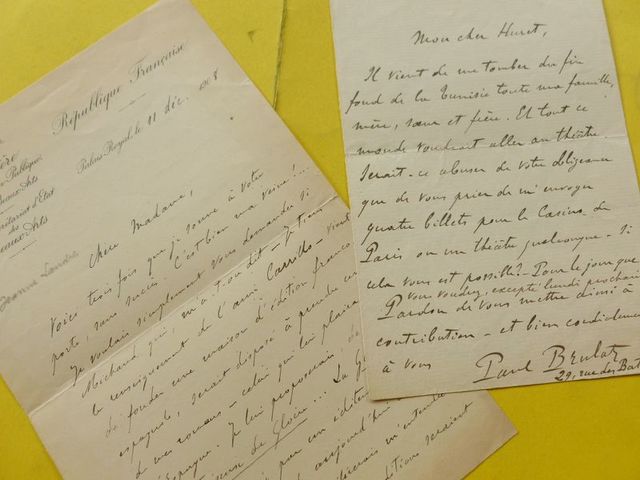 République Française
Palais-Royal, le 11 déc. 1908
ère
Publique
Beaux-Arts
d'Etat
eaux-Arts
Jeanne Landre
Chère Madame,
Voici trois fois que je sonne à votre
porte, sans succès. C'est bien ma veine!...
Je voulais simplement vous demander si
le renseignement de l'ami Carrillo vient
Michaud qui, m'a-t-on dit
de fonder une maison d'édition franco
espagnole, serait disposé à prendre
de mes romans - celui qui lui plaira
Espagne. Je lui proposerais
de Gloire... La
par un édite
aujourd'hui
m'entend
ditions seraient
Mon cher Huret,
Il vient de me tomber du fin
fond de la Tunisie toute ma famille,
mère, sœur et frère. Et tout ce
monde voudrait aller au théâtre.
Serait-ce abuser de votre obligeance
que de vous prier de m'envoyer
quatre billets pour le Casino de
Paris ou un théâtre quelconque - si
cela vous est possible? - Pour le jour que
vous voudrez, excepté lundi prochain
Pardon de vous mettre ainsi à
contribution - et bien cordialement
à vous
Paul Brulat
29, rue des Bat